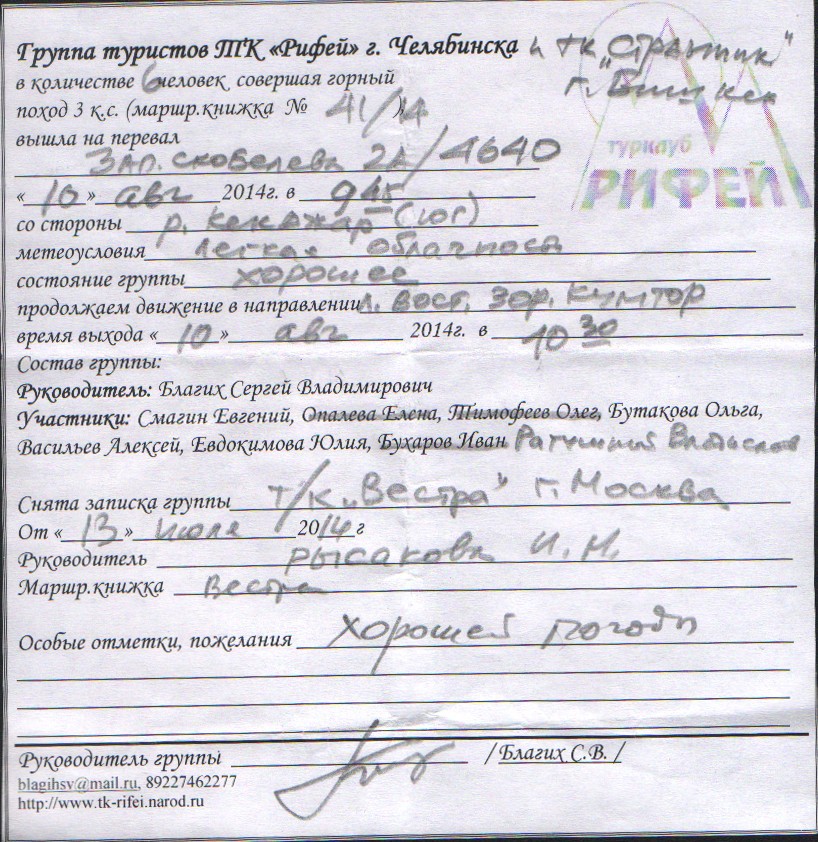 Группа туристов ТК «Рифей» г. Челябинска и тк „Странник"
г. Бишкек
в количестве 6 человек совершая горный
поход 3 к.с. (маршр.книжка № 41/14
вышла на перевал
турклуб
РИФЕЙ
Зап. Скобелева 2А/4640
«10» авг 2014г. в 9 45
со стороны р. Кекджар (юг)
метеоусловия легкая облачность
состояние группы хорошее
продолжаем движение в направлении л. Вост. Зор. Кумтор
время выхода «10» авг 2014г. в 10 30
Состав группы:
Руководитель: Благих Сергей Владимирович
Участники: Смагин Евгений, Опалева Елена, Тимофеев Олег, Бутакова Ольга,
Васильев Алексей, Евдокимова Юлия, Бухаров Иван
Снята записка группы т/к „Вестра" г. Москва
От «13» июля 2014 г
Руководитель Рысакова И. М.
Маршр.книжка Вестра
Особые отметки, пожелания Хорошей погоды
Руководитель группы /Благих С.В. /
blagihsv@mail.ru, 89227462277
http://www.tk-rifei.narod.ru